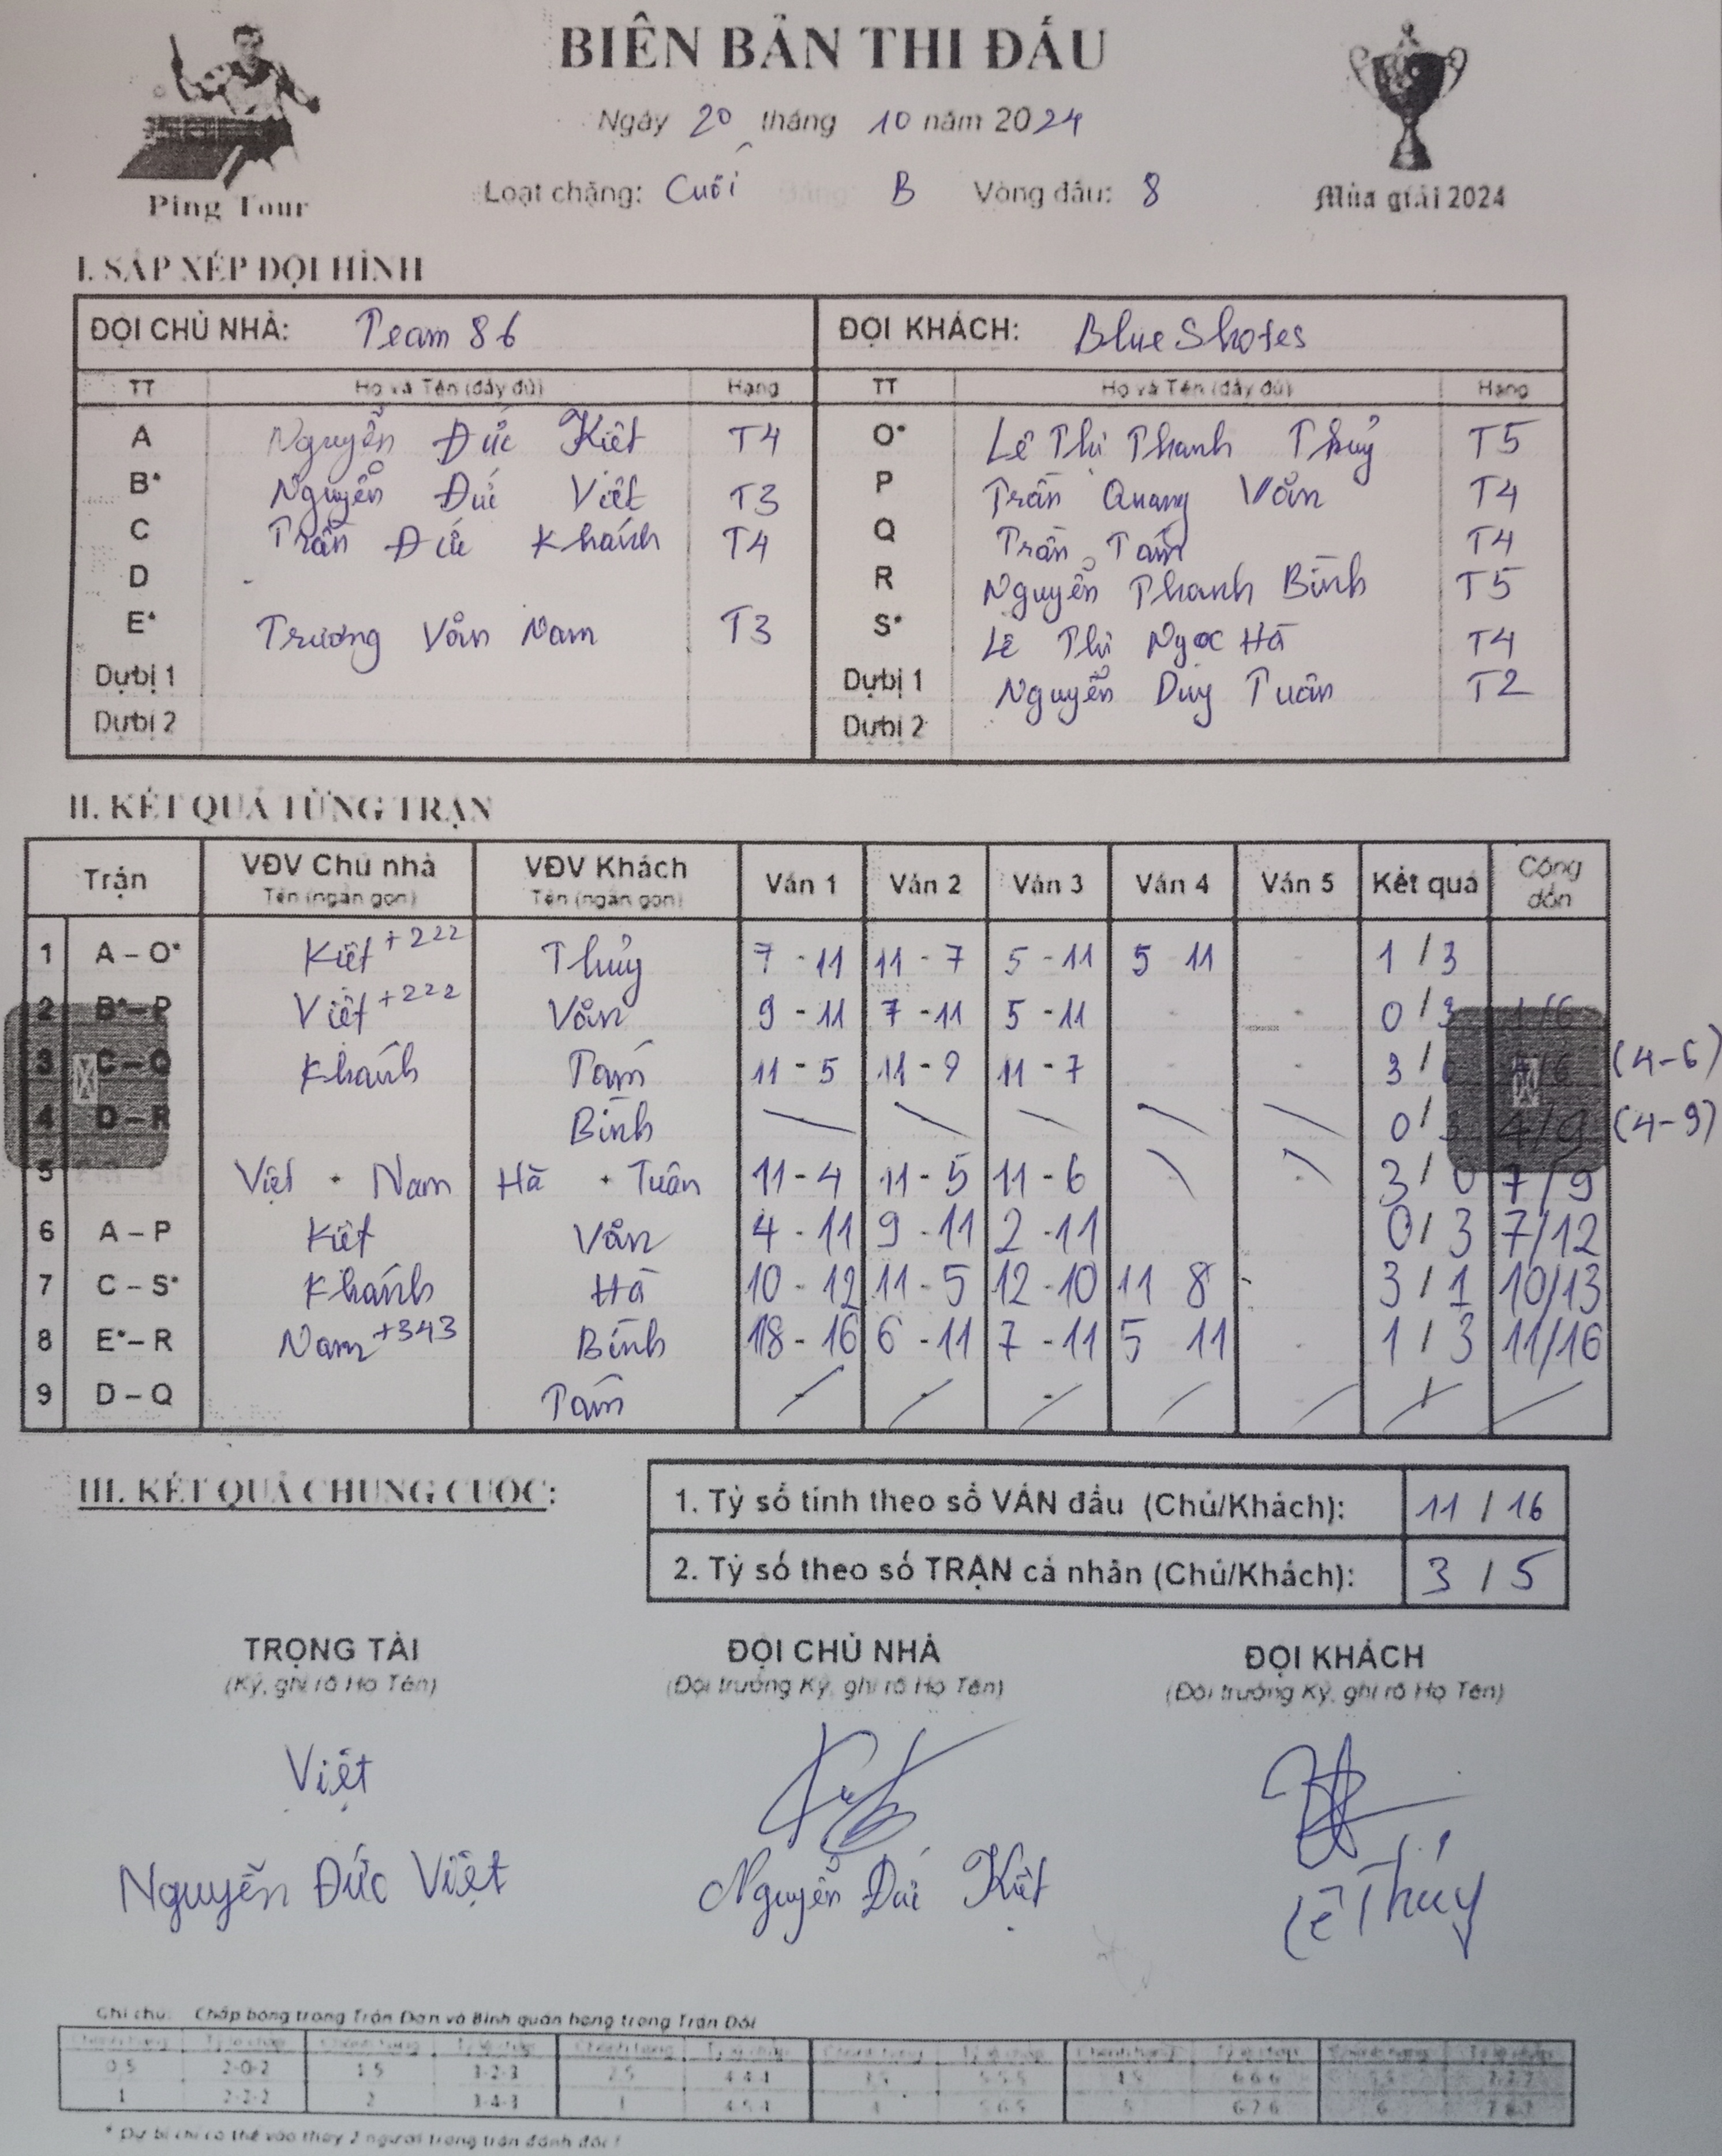 BIÊN BẢN THI ĐẤU
Ngày 20 tháng 10 năm 2024
Loạt chặng: Cuối Bảng: B Vòng đấu: 8
Ping Tour
Mùa giải 2024
I. SẮP XẾP ĐỘI HÌNH
ĐỘI CHỦ NHÀ: Team 86 ĐỘI KHÁCH: BlueShotes
TT Họ và Tên (đầy đủ) Hạng TT Họ và Tên (đầy đủ) Hạng
A Nguyễn Đức Kiệt T4 O* Lê Thị Thanh Thủy T5
B* Nguyễn Đức Việt T3 P Trần Quang Vân T4
C Trần Đức Khánh T4 Q Trần Tám T4
D - R Nguyễn Thanh Bình T5
E* Trương Văn Nam T3 S* Lê Thị Ngọc Hà T4
Dự bị 1 Dự bị 1 Nguyễn Duy Tuân T2
Dự bị 2 Dự bị 2
II. KẾT QUẢ TỪNG TRẬN
Trận VĐV Chủ nhà VĐV Khách Ván 1 Ván 2 Ván 3 Ván 4 Ván 5 Kết quả Cộng dồn
Tên (ngắn gọn) Tên (ngắn gọn)
1 A – O* Kiệt +222 Thủy 7 - 11 11 - 7 5 - 11 5 11 - 1 / 3
2 B* – P Việt +222 Vân 9 - 11 7 - 11 5 - 11 - - 0 / 3 1/6
3 C – Q Khánh Tám 11 - 5 11 - 9 11 - 7 - - 3 / 0 4/6 (4-6)
4 D – R Bình 0 / 3 4/9 (4-9)
5 Việt + Nam Hà + Tuân 11 - 4 11 - 5 11 - 6 3 / 0 7/9
6 A – P Kiệt Vân 4 - 11 9 - 11 2 - 11 0 / 3 7/12
7 C – S* Khánh Hà 10 - 12 11 - 5 12 - 10 11 8 - 3 / 1 10/13
8 E* – R Nam +343 Bình 18 - 16 6 - 11 7 - 11 5 11 - 1 / 3 11/16
9 D – Q Tám
III. KẾT QUẢ CHUNG CUỘC:
1. Tỷ số tính theo số VÁN đấu (Chủ/Khách): 11 / 16
2. Tỷ số theo số TRẬN cá nhân (Chủ/Khách): 3 / 5
TRỌNG TÀI ĐỘI CHỦ NHÀ ĐỘI KHÁCH
(Ký, ghi rõ Họ Tên) (Đội trưởng Ký, ghi rõ Họ Tên) (Đội trưởng Ký, ghi rõ Họ Tên)
Việt
Nguyễn Đức Việt Nguyễn Đức Kiệt Lê Thúy
Ghi chú: Chấp bóng trong Trận Đơn và Bình quân hạng trong Trận Đôi
0,5 2-0-2 1.5 3-2-3 2,5 4-4-4 3,5 5-5-5 4.5 6-6-6 7-7-7
1 2-2-2 2 3-4-3 4-5-4 4 5-6-5 5 6-7-6 6
* Dự bị chỉ có thể vào thay 2 người trong trận đánh đôi !